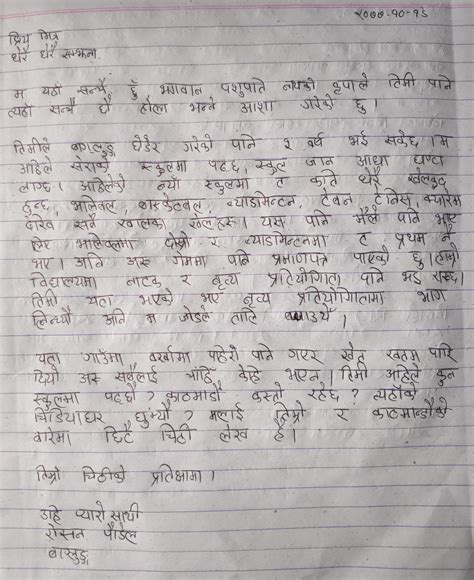 २०७७-१०-१८
प्रिय मित्र
धेरै धेरै सम्झना,
म यहाँ सन्चै छु भगवान पशुपति नाथको कृपाले तिमी पनि
त्यहाँ सन्चै छौ होला भन्ने आशा गरेको छु ।
तिमीले बागलुङ छोडेर गएको पनि २ वर्ष भई सकेछ । म
अहिले सेराको स्कुलमा पढ्छु, स्कुल जान आधा घण्टा
लाग्छ । अहिलेको नयाँ स्कुलमा त कति धेरै खेलकुद
हुन्छ, भलिबल, बास्केटबल, ब्याडमिन्टन, टेबल टेनिस, क्यारेम
देखि सबै खालका खेलहरू । यस पालि मैले पनि भाग
लिए भलिबलमा दोस्रो र ब्याडमिन्टनमा त प्रथम नै
भए । अनि अरु गेममा पनि प्रमाणपत्र पाएको छु । हाम्रो
विद्यालयमा नाटक र नृत्य प्रतियोगिता पनि भइ राख्छ ।
तिमी यता भएको भए नृत्य प्रतियोगितामा भाग
लिन्थ्यौ अनि म जोडले तालि बजाउथेँ ।
यता गाउँमा वर्खामा पहिरो पनि गएर खेत खतम पारि
दियो अरु सबैलाई चाँहि केहि भएन । तिमी अहिले कुन
स्कुलमा पढ्छौ ? काठमाडौ कस्तो रहेछ ? त्यहाँको
चिडियाघर घुम्यौ ? मलाई तिम्रो र काठमान्डौको
बारेमा छिटै चिठी लेख है ।
तिम्रो चिठीको प्रतिक्षामा ।
उहि प्यारो साथी
रोसन पौडेल